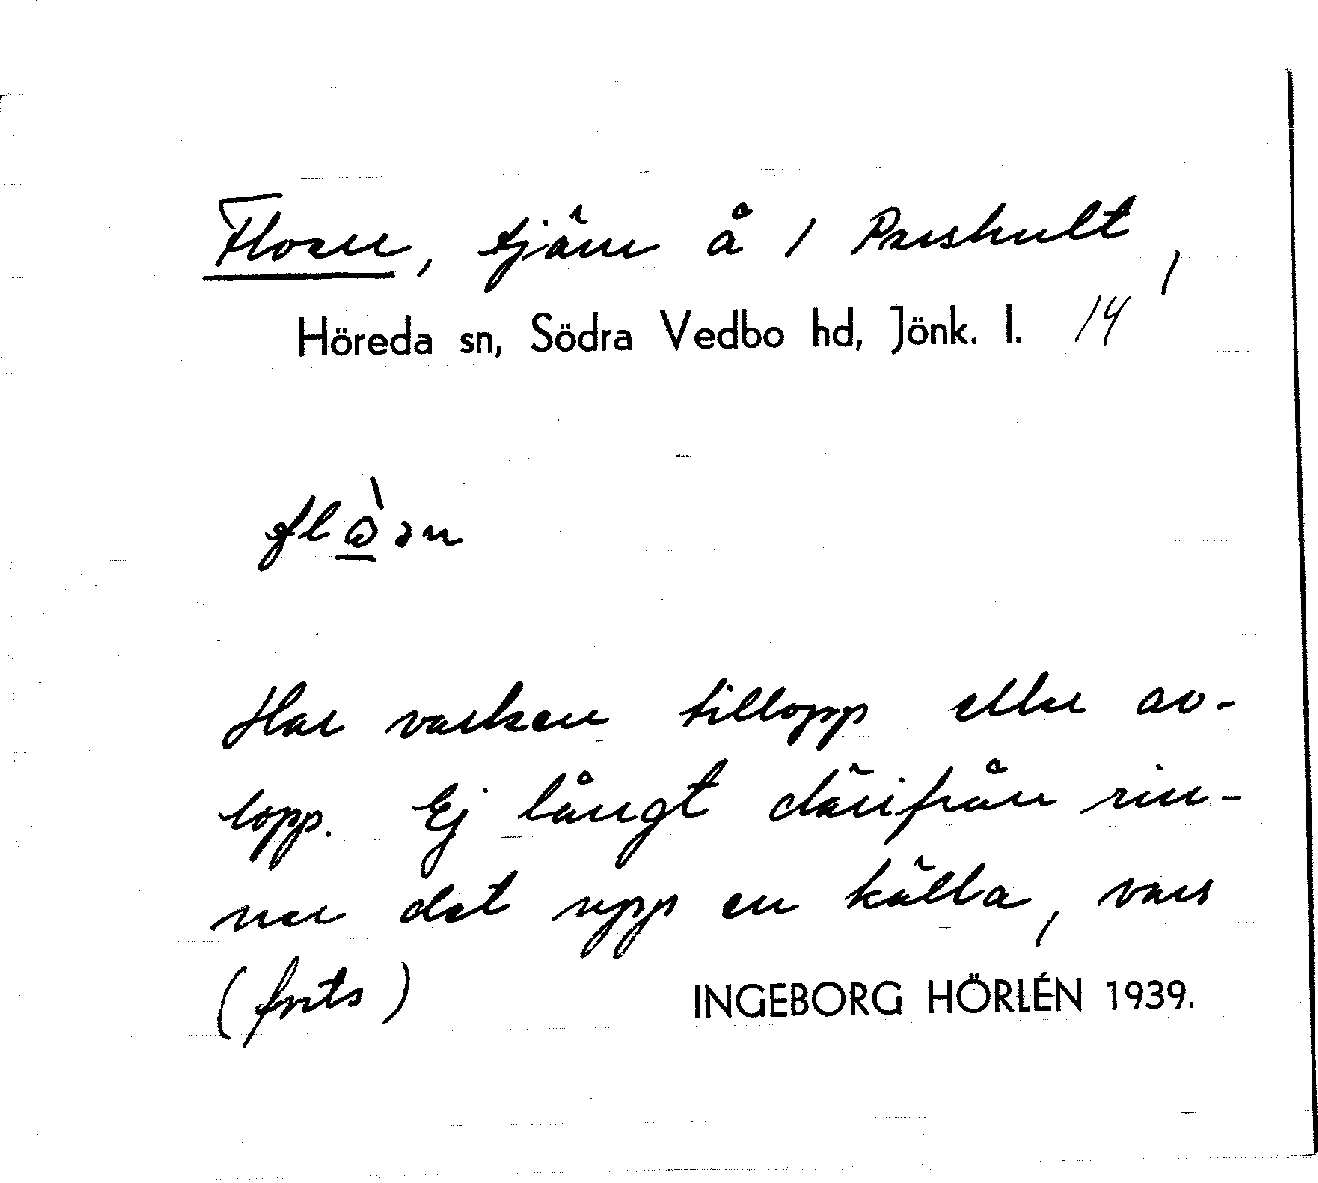 Floen, tjärn å 1 Parshult,
Höreda sn, Södra Vedbo hd, Jönk. l. 14
Har varken tillopp eller av-
lopp. Ej långt därifrån rin-
ner det upp en källa, vars
(forts)
INGEBORG HÖRLÉN 1939.